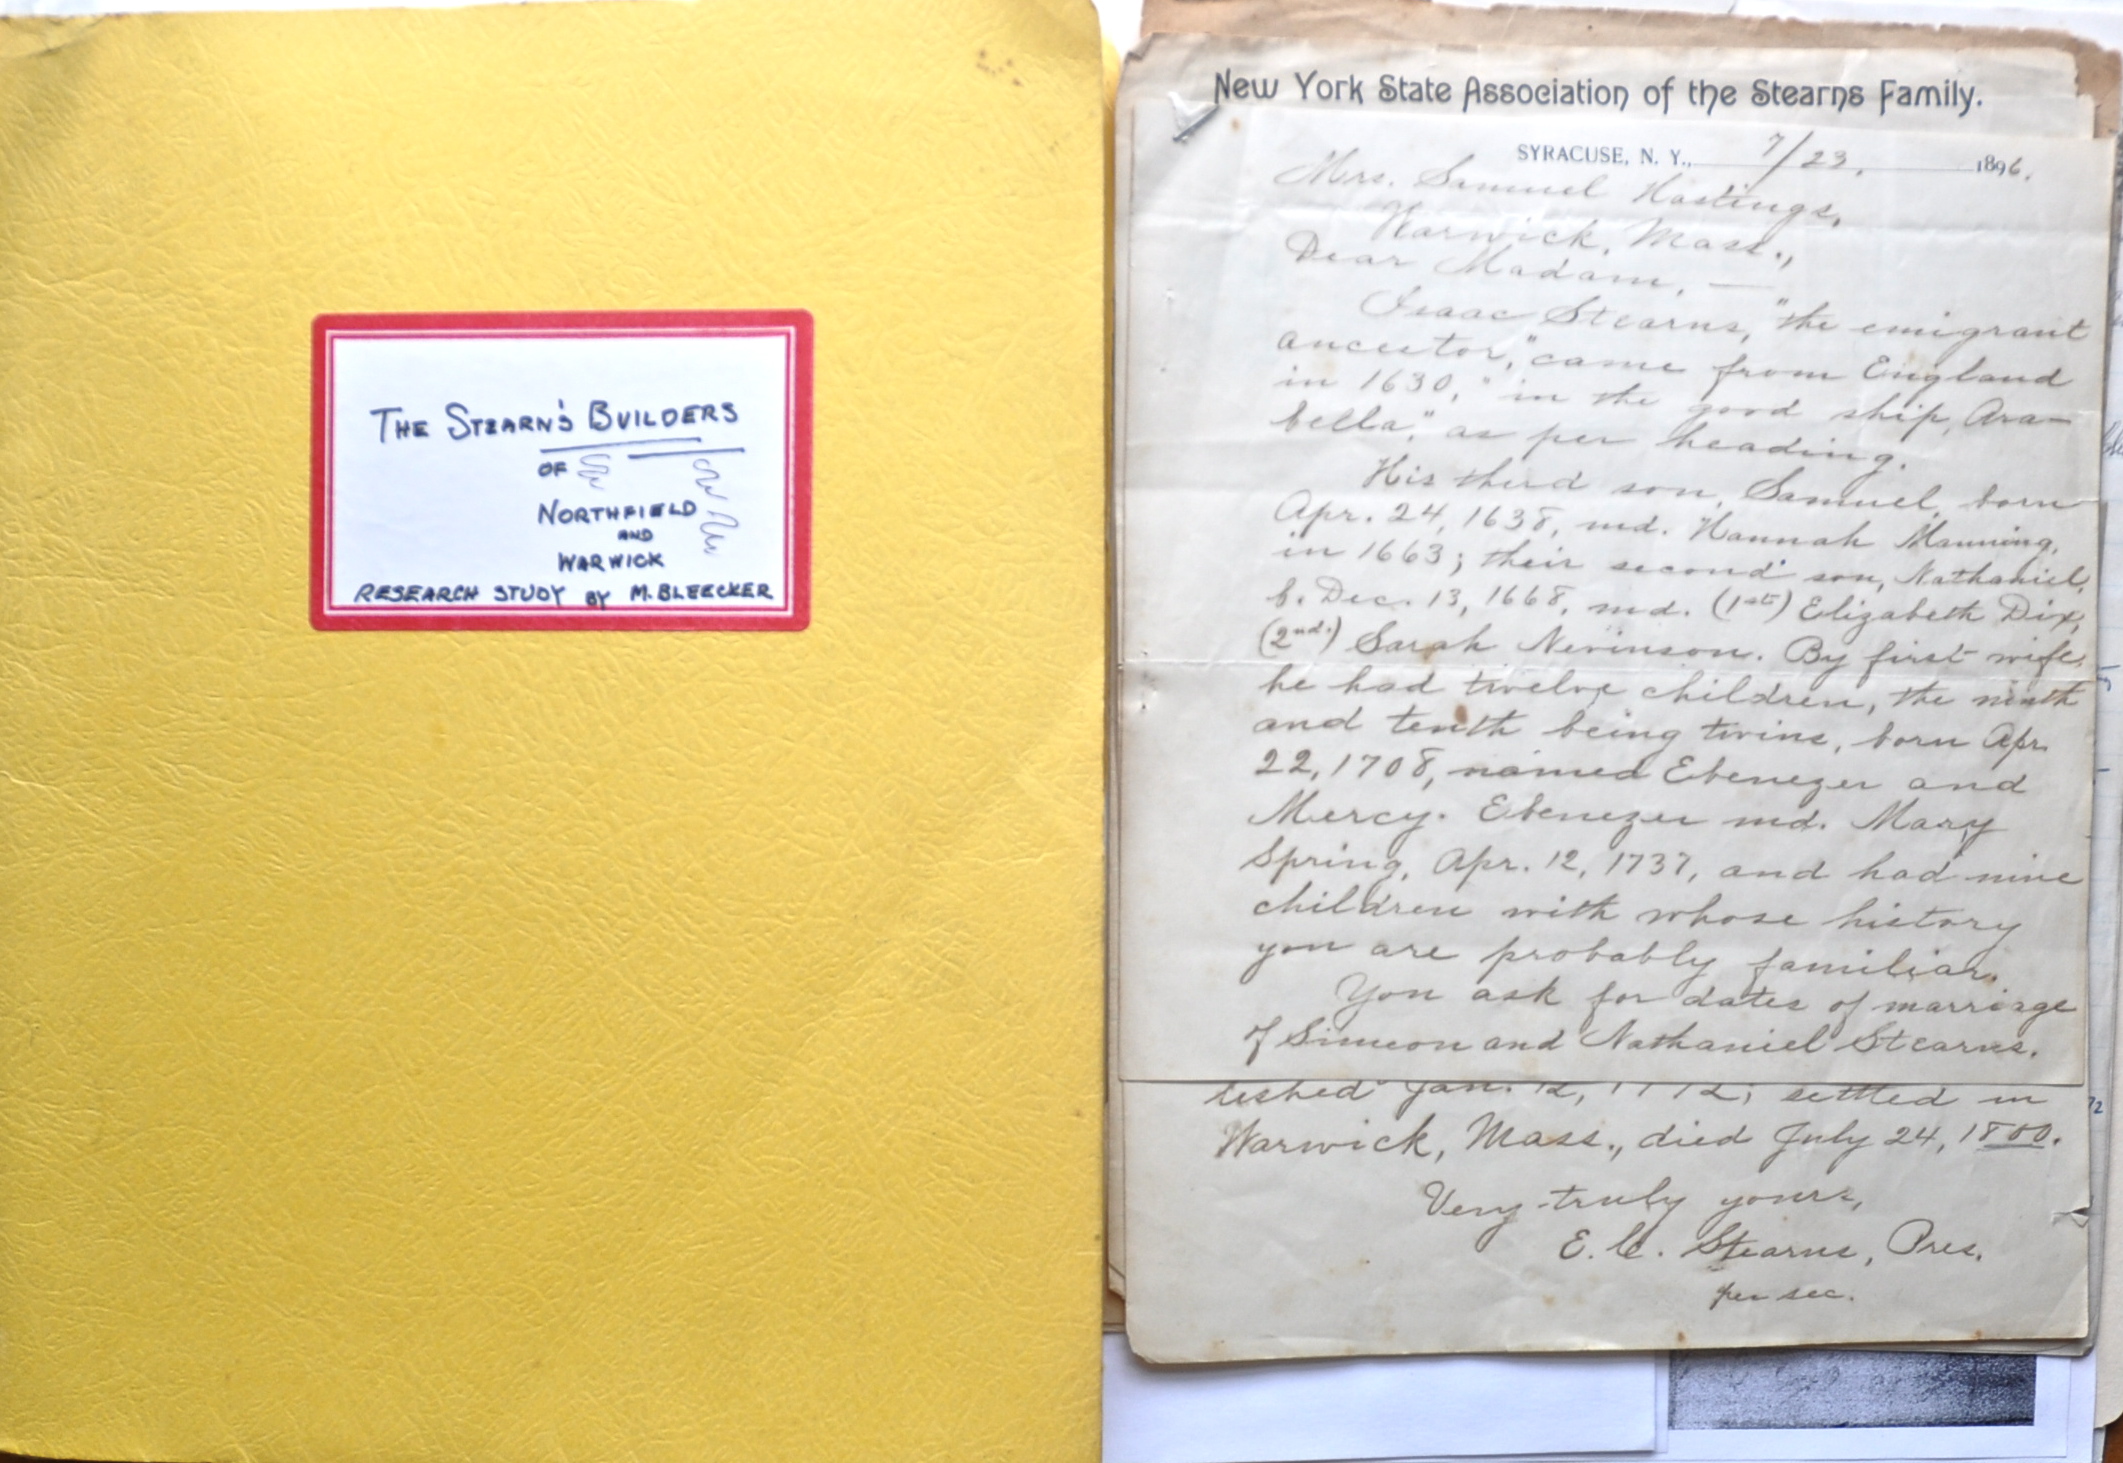 THE STEARN'S BUILDERS
OF
NORTHFIELD
AND
WARWICK
RESEARCH STUDY BY M. BLEECKER
New York State Association of the Stearns Family.
SYRACUSE, N. Y., 7/23, 1896.
Mrs. Samuel Hastings,
Warwick, Mass.,
Dear Madam, —
Isaac Stearns, "the emigrant
ancestor," came from England
in 1630, "in the good ship, Ara-
bella," as per heading.
His third son, Samuel, born
Apr. 24, 1638, md. Hannah Manning,
in 1663; their second son, Nathaniel,
b. Dec. 13, 1668, md. (1st) Elizabeth Dix,
(2nd.) Sarah Nevinson. By first wife,
he had twelve children, the ninth
and tenth being twins, born Apr.
22, 1708, named Ebenezer and
Mercy. Ebenezer md. Mary
Spring, Apr. 12, 1737, and had nine
children with whose history
you are probably familiar.
You ask for dates of marriage
of Simeon and Nathaniel Stearns.
lished Jan. 12, 1772; settled in
Warwick, Mass., died July 24, 1800.
Very truly yours,
E. C. Stearns, Pres.
per sec.